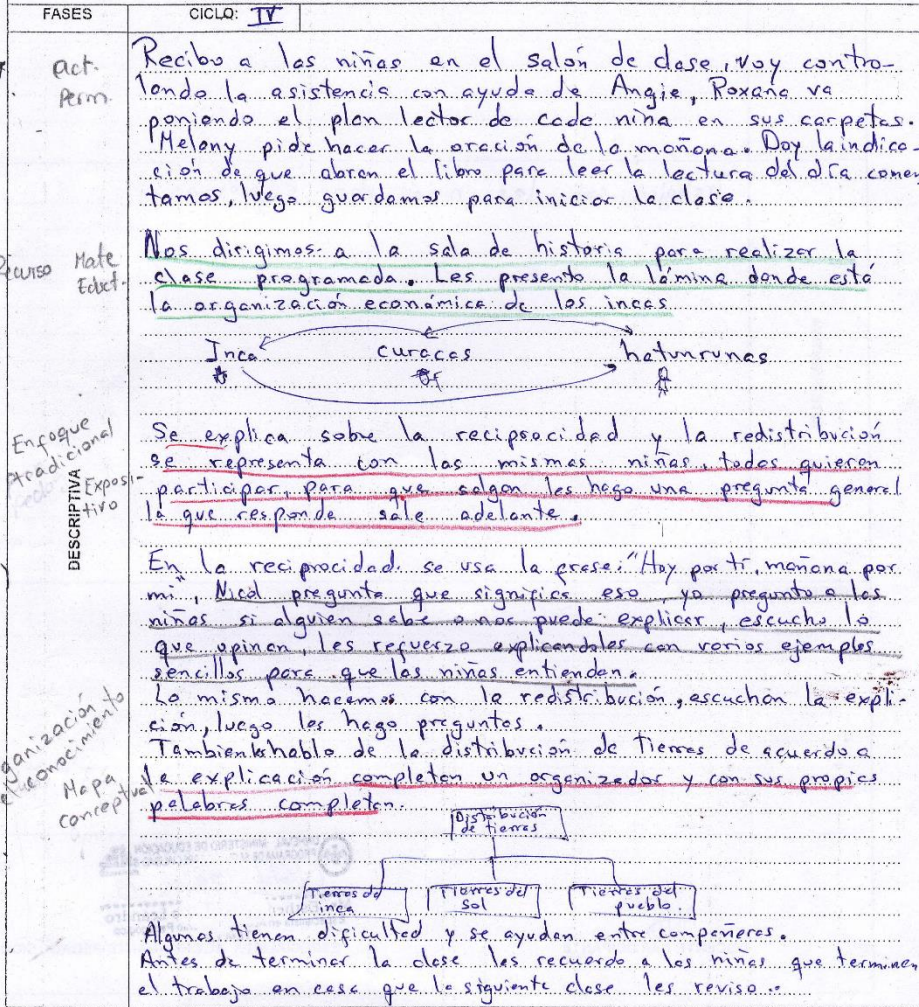 FASES
CICLO: IV
act.
Perm.
Recibo a las niñas en el salón de clase, voy contro-
lando la asistencia con ayuda de Angie, Roxana va
poniendo el plan lector de cada niña en sus carpetas.
Melany pide hacer la oración de la mañana. Doy la indica-
ción de que abran el libro para leer la lectura del día comen
tamos, luego guardamos para iniciar la clase.
Mate
Educt.
Nos dirigimos a la sala de historia para realizar la
clase programada. Les presento la lámina donde está
la organización económica de los incas
Inca curacas hatunrunas
Enfoque
tradicional
Exposi-
tivo
DESCRIPTIVA
Se explica sobre la reciprocidad y la redistribución
se representa con las mismas niñas, todas quieren
participar, para que salgan les hago una pregunta general
la que responde sale adelante.
En la reciprocidad se usa la frase: "Hoy por tí, mañana por
mi", Nicol pregunta que significa eso, yo pregunto a las
niñas si alguien sabe o nos puede explicar, escucho lo
que opinan, les refuerzo explicandoles con varios ejemplos
sencillos para que las niñas entiendan.
Lo mismo hacemos con la redistribución, escuchan la expli-
ción, luego les hago preguntas.
Mapa
conceptual
Tambien hablo de la distribución de tierras de acuerdo a
la explicación completan un organizador y con sus propias
palabras completan.
Distribución
de tierras
Tierras del
inca
Tierras del
sol
Tierras del
pueblo.
Algunas tienen dificultad y se ayudan entre compañeras.
Antes de terminar la clase les recuerdo a las niñas que terminen
el trabajo en casa que la siguiente clase les reviso.